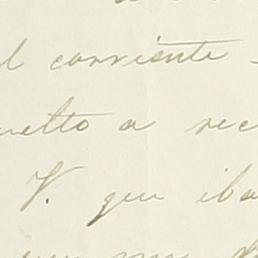 l corriente
uelto a rec
V. que iba